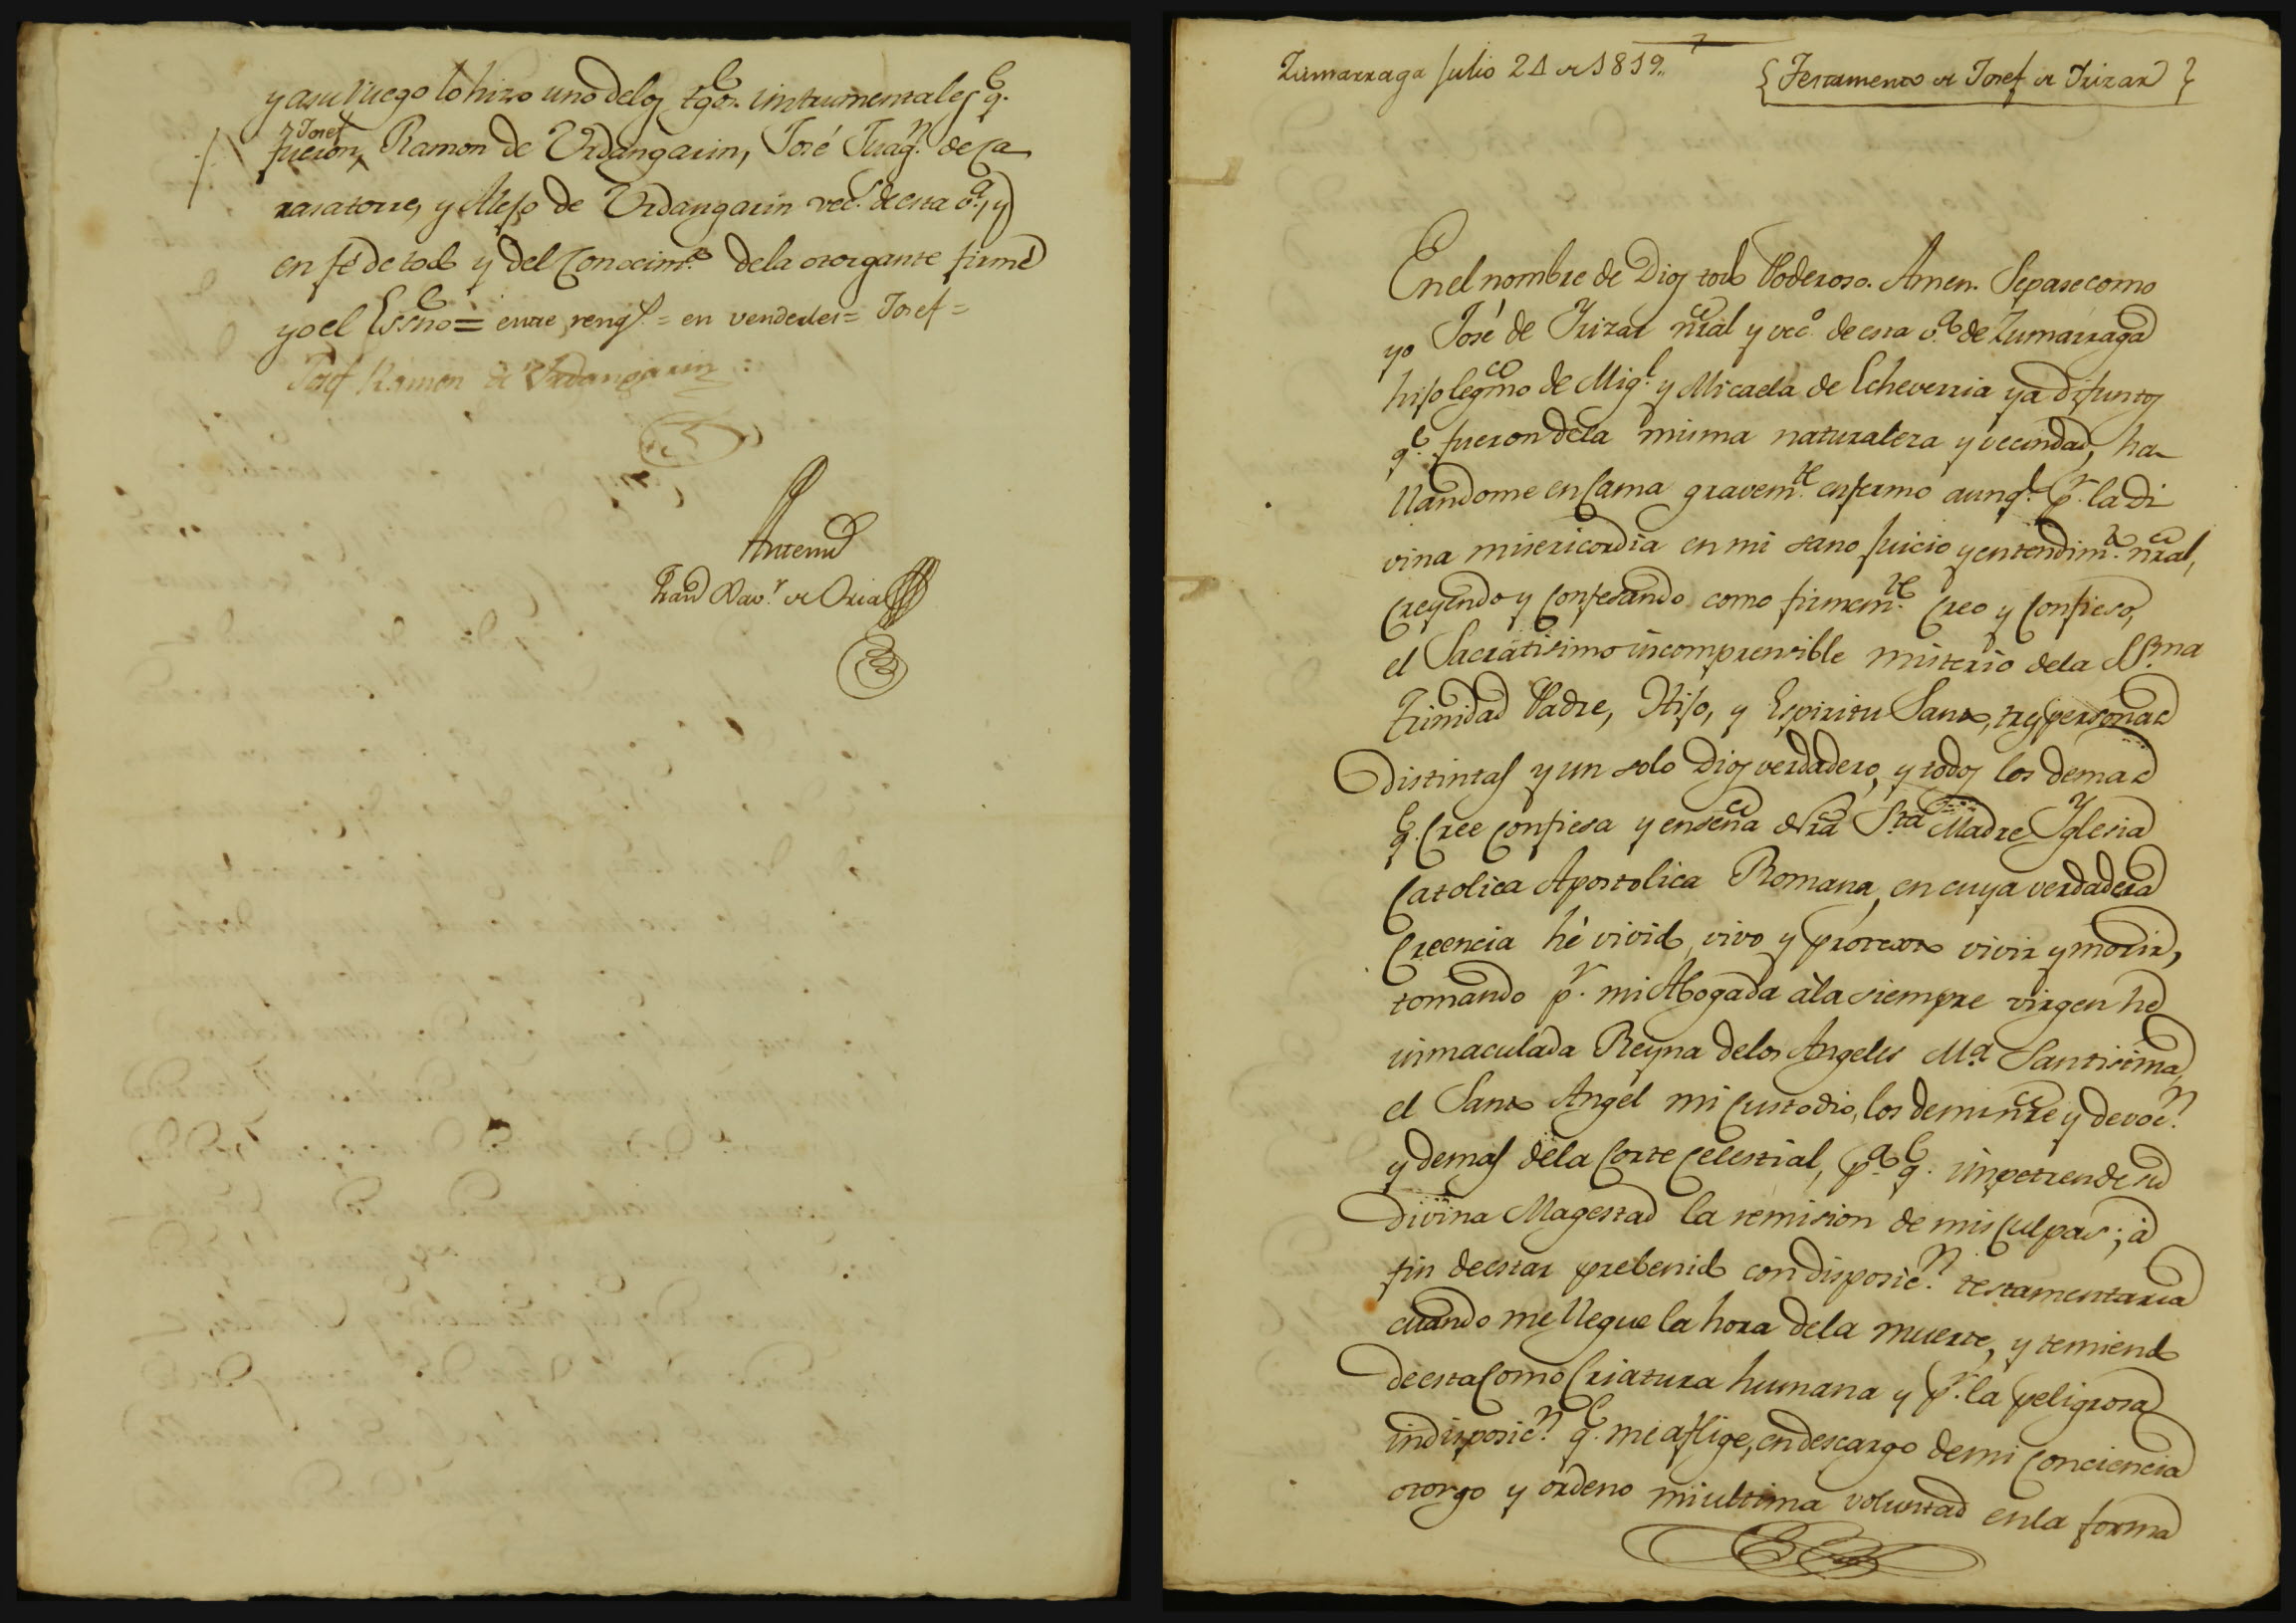 y a su ruego lo hizo uno de los tgos. instrumentales q.e
fueron, Josef Ramon de Urdangarin, José Juaq.n de Ca
rasatorre, y Alejo de Urdangarin vec.s de esta v.a, y
en fé de todo y del Conocim.to de la otorgante firmé
yo el Essno = entre reng.s = en venderles = Josef =
Josef Ramon de Urdangarin
Antemi
Fran.co Xav.r de Oria
Zumarraga Julio 21 de 1819,,
{Testamento de Josef de Irizar}
En el nombre de Dios todo Poderoso. Amen. Sepase como
yo José de Yrizar nral y vec.o de esta v.a de Zumarraga
hijo legmo de Mig.l y Micaela de Echeverria ya difuntos
q.e fueron de la misma naturaleza y vecindad, ha-
llandome en Cama gravem.te enfermo aunq.e p.r la di
vina misericordia en mi sano juicio y entendim.to nral,
Creyendo y Confesando como firmem.te Creo y Confieso,
el Sacratisimo incomprensible misterio de la SS.ma
Trinidad Padre, Hijo, y Espiritu Santo, tres personas
Distintas y un solo Dios verdadero, y todos los demas
q.e Cree Confiesa y enseña Nra S.ta Madre Yglesia
Catolica Apostolica Romana, en cuya verdadera
Creencia hé vivido, vivo y protexto vivir y morir,
tomando p.r mi Abogada à la siempre virgen he
inmaculada Reyna de los Angeles M.a Santisima,
el Santo Angel mi Custodio, los de mi nre y devoc.n
y demas de la Corte Celestial, p.a q.e impetren de su
Divina Magestad la remision de mis Culpas; à
fin de estar prebenido con disposic.n testamentaria
cuando me llegue la hora de la muerte, y temiendo
de esta Como Criatura humana y p.r la peligrosa
indisposic.n q.e me aflige, en descargo de mi Conciencia
otorgo y ordeno mi ultima voluntad en la forma